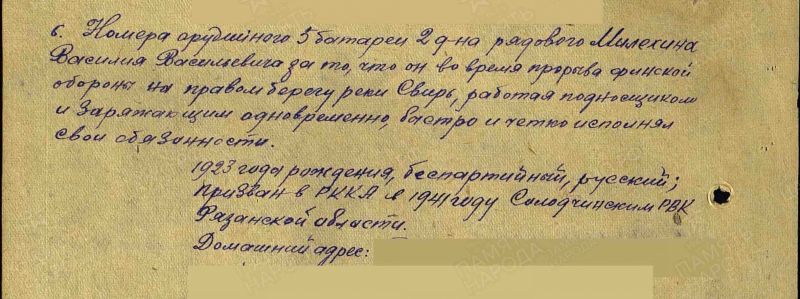 6. Номера орудийного 5 батареи 2 д-на рядового Милехина
Василия Васильевича за то, что он во время прорыва финской
обороны на правом берегу реки Свирь, работая подносщиком
и Заряжающим одновременно, быстро и четко исполнял
свои обязанности.
1923 года рождения, беспартийный, русский;
призван в РККА в 1941 году Солодчинским РВК
Рязанской области.
Домашний адрес: